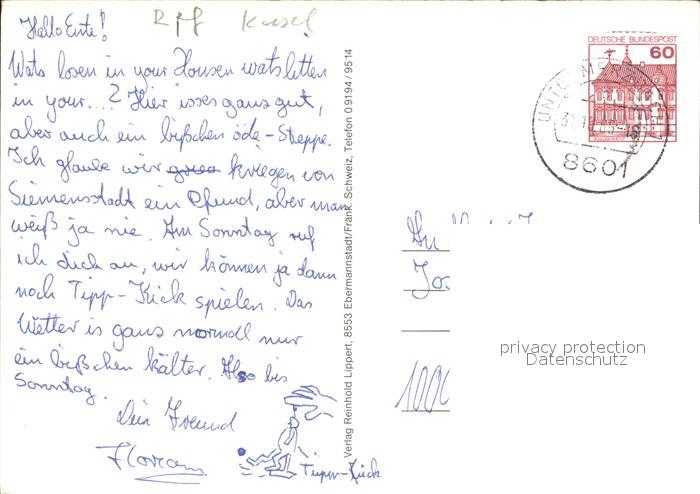 Hallo Ente!
Wats losen in your Housen wats letten
in your...? Hier isses ganz gut,
aber auch ein bißchen öde-Steppe.
Ich glaube wir kriegen von
Siemensstadt ein Pfund, aber man
weiß ja nie. Am Sonntag ruf
ich dich an, wir können ja dann
noch Tipp-Kick spielen. Das
Wetter is ganz normal nur
ein bißchen kälter. Also bis
Sonntag.
Dein Freund
Florian
Tipp-Kick
Verlag Reinhold Lippert, 8553 Ebermannstadt/Fränk. Schweiz, Telefon 09194/9514
DEUTSCHE BUNDESPOST
60
8601
An
privacy protection
Datenschutz